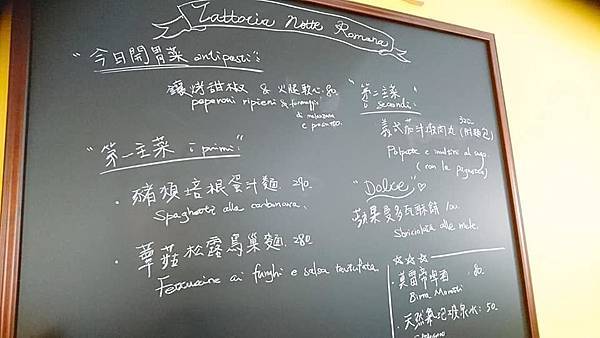 Tattoria Notte Romana
"今日開胃菜 antipasti":
鑲烤甜椒 & 火腿軟心 80
peperoni ripieni & formaggio
di malanzana
e prosciutto.
"第一主菜 i primi":
· 豬頰培根蛋汁麵. 240.
Spaghetti alla carbonara.
· 蕈菇松露鳥巢麵. 280.
Fettuccine ai funghi e salsa tartufata
"第二主菜
i secondi":
320
義式茄汁燉肉丸 (附麵包)
Polpette e al sugo
(con la )
"Dolce"♡
蘋果曼多瓦酥餅 100
Sbriciolata alle mele.
☆☆☆
· 莫雷帝啤酒. 80.
Birra Moretti
· 天然氣泡礦泉水: 50.